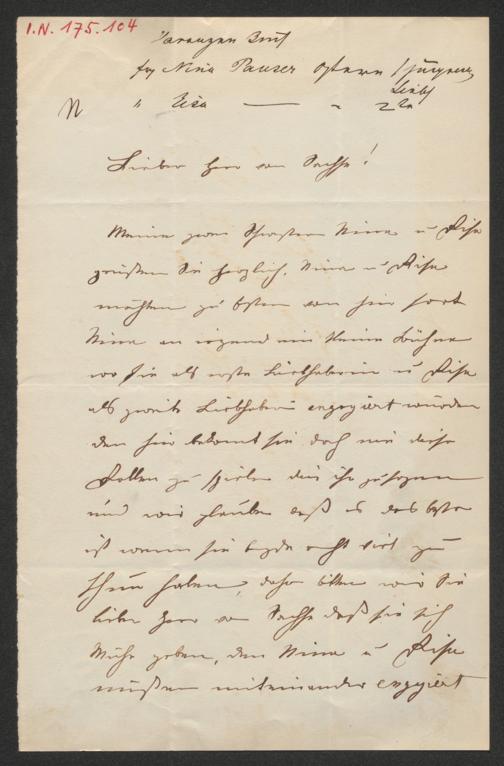 I.N. 175.104
frn Nina Pauser Ostern
N " Lisa — "
Lieber Herr von Sachse!
Meine zwei Schwestern Nina u Lisa
grüßen Sie herzlich, Nina u Lisa
möchten zu Ostern von hier fort
Nina an irgend eine kleine Bühne
wo sie als erste Liebhaberin u Lisa
als zweite Liebhaberin engagiert würden
den hier bekomt sie doch nie diese
Rollen zu spielen die ihr zusagen
und wir glauben daß es das beste
ist wenn sie beyde recht viel zu
thun haben, daher bitten wir Sie
lieber Herr von Sachse daß sie sich
Mühe geben, den Nina u Lisa
müßen miteinander engagiert